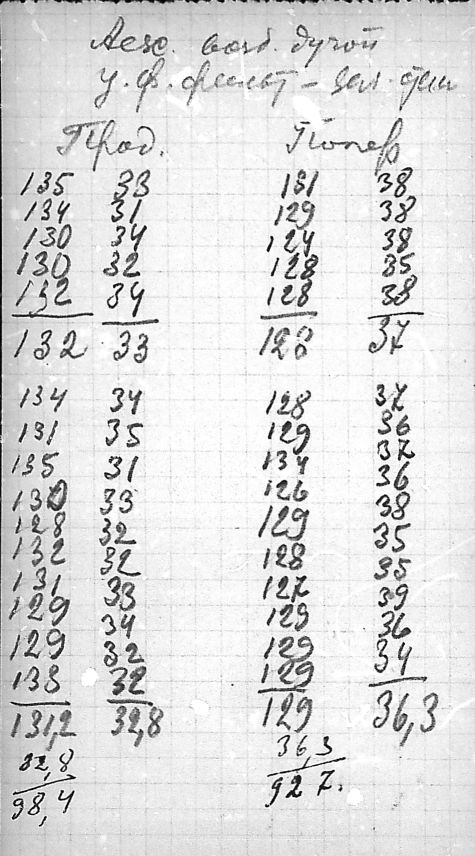 Прод. Попер.
135 33 131 38
134 31 129 38
130 34 124 38
130 32 128 35
132 34 128 38
132 33 128 37
134 34 128 37
131 35 129 36
135 31 134 37
130 33 126 36
128 32 129 38
132 32 128 35
131 33 127 35
129 34 129 39
129 32 129 36
138 32 129 34
131,2 32,8 129 36,3
32,8 36,3
98,4 92 7.